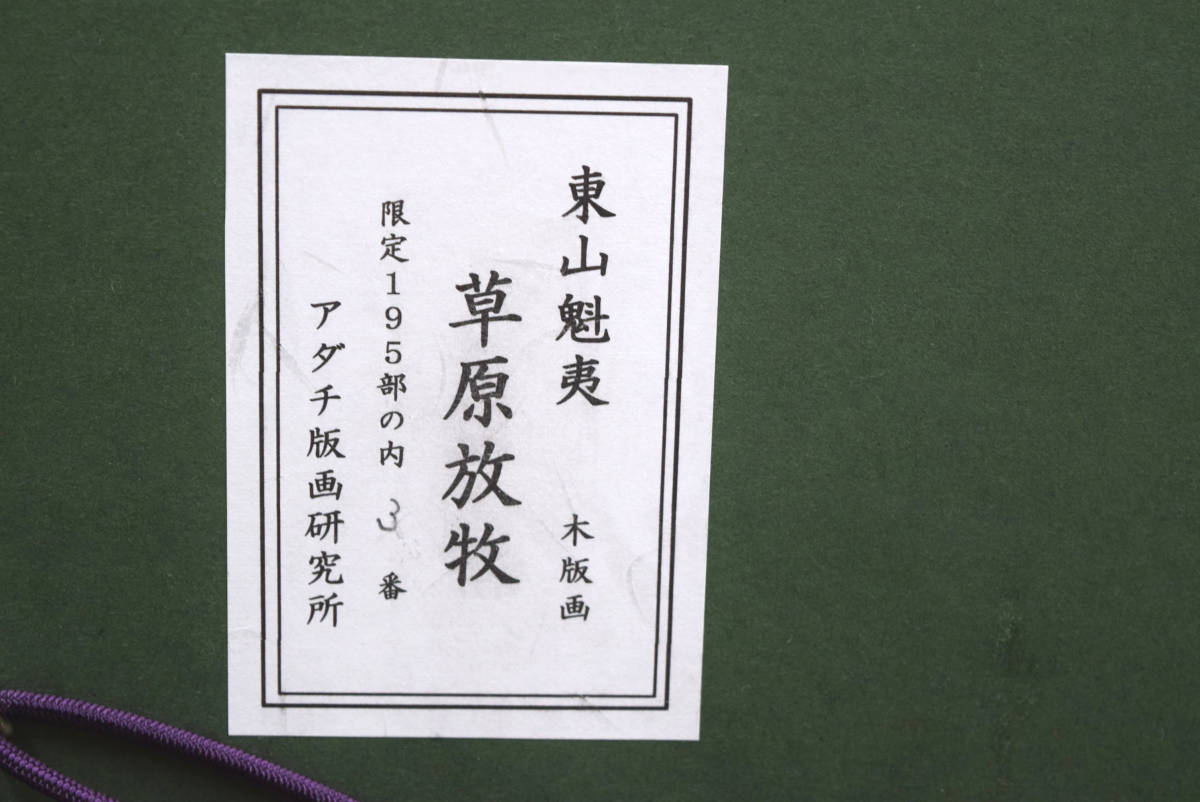 東山魁夷 木版画
草原放牧
限定195部の内 3 番
アダチ版画研究所